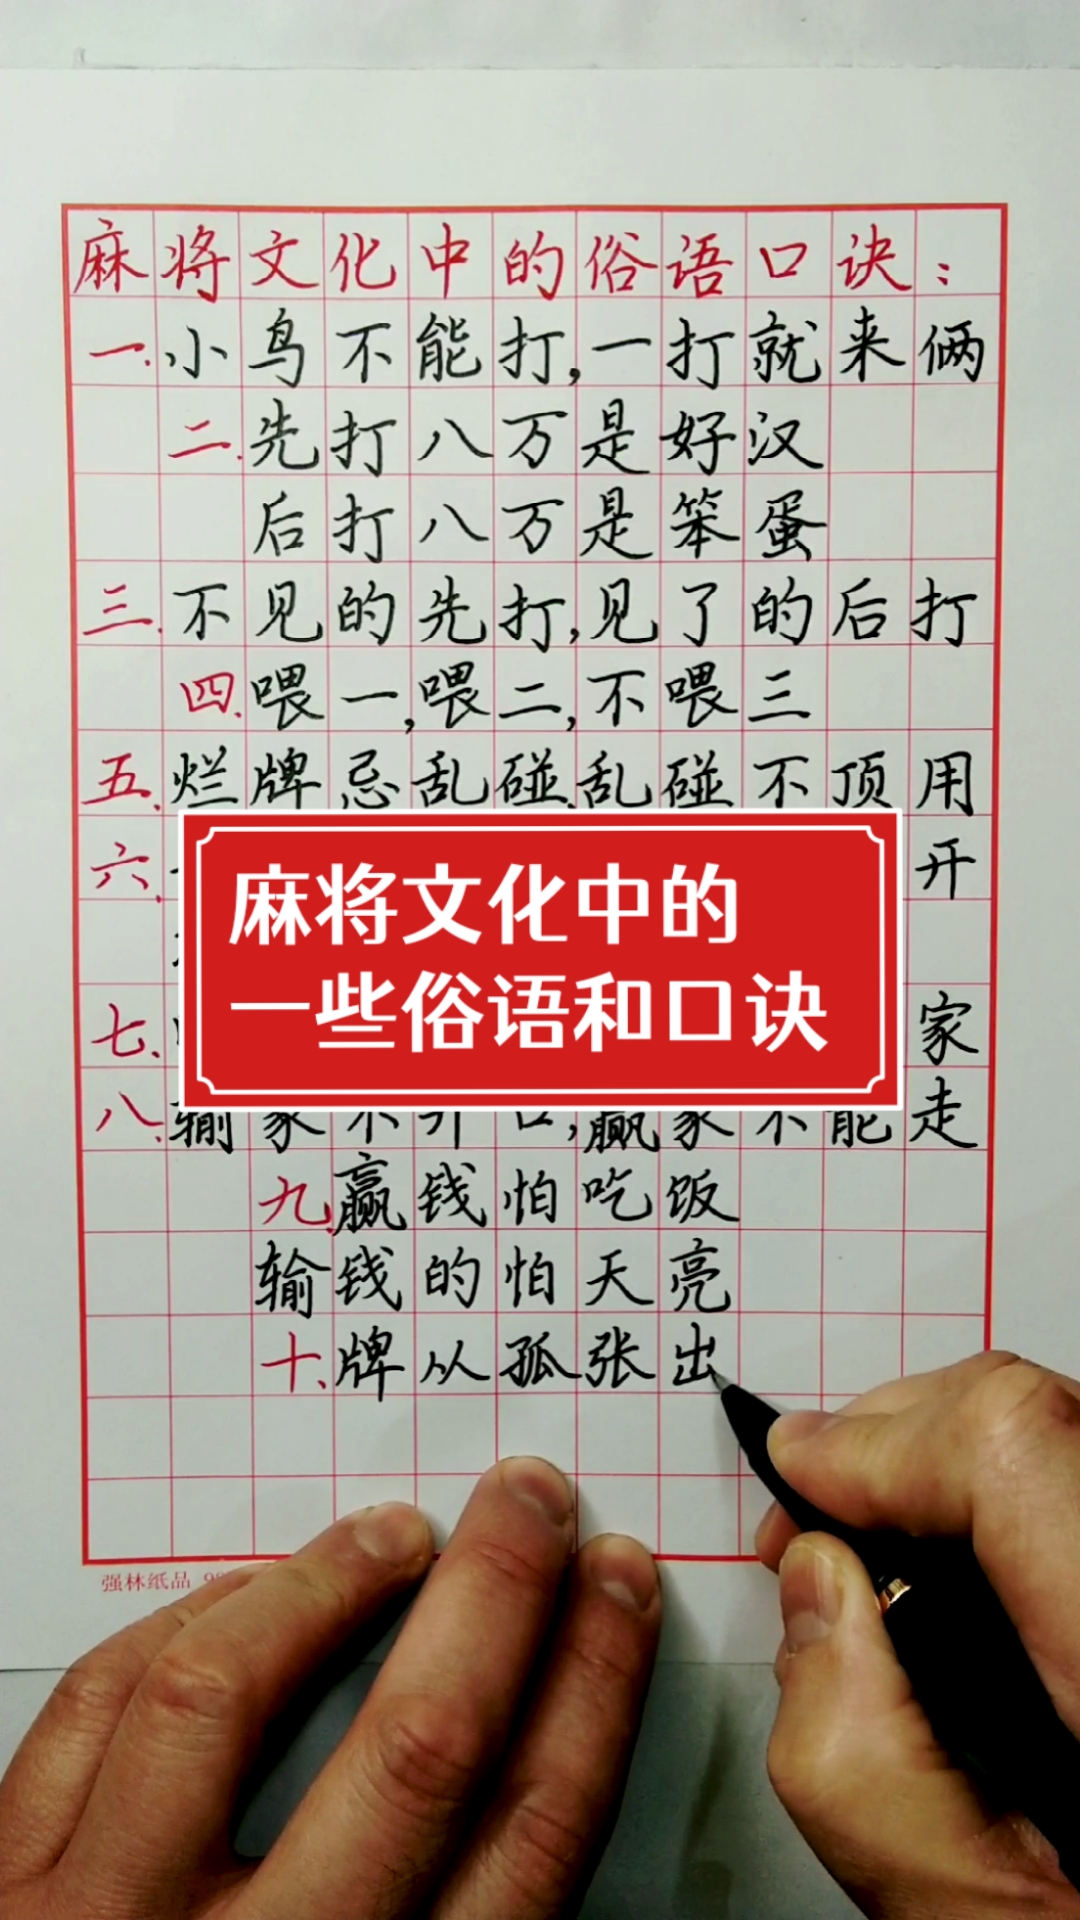 麻将文化中的俗语口诀：
一.小鸟不能打,一打就来俩
二.先打八万是好汉
后打八万是笨蛋
三.不见的先打,见了的后打
四.喂一,喂二,不喂三
五.烂牌忌乱碰.乱碰不顶用
六.开
麻将文化中的
一些俗语和口诀
七.家
八.输家不开口,赢家不能走
九.赢钱怕吃饭
输钱的怕天亮
十、牌从孤张出
强林纸品